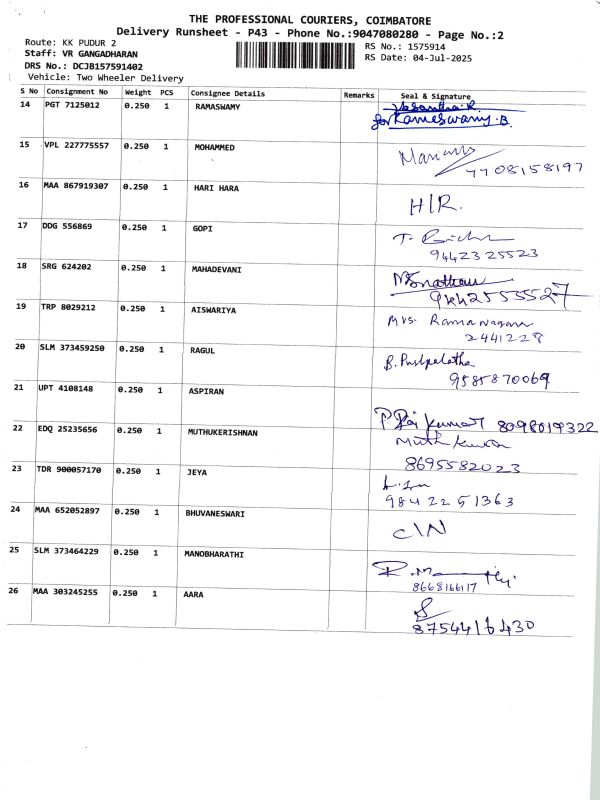 THE PROFESSIONAL COURIERS, COIMBATORE
Delivery Runsheet - P43 - Phone No.:9047080280 - Page No.:2
Route: KK PUDUR 2
Staff: VR GANGADHARAN
DRS No.: DCJB157591402
Vehicle: Two Wheeler Delivery
RS No.: 1575914
RS Date: 04-Jul-2025
S No Consignment No Weight PCS Consignee Details Remarks Seal & Signature
14 PGT 7125012 0.250 1 RAMASWAMY Vasantha.R
for Rameswamy.B
15 VPL 227775557 0.250 1 MOHAMMED
7708158197
16 MAA 867919307 0.250 1 HARI HARA H/R.
17 DDG 556869 0.250 1 GOPI T.
9442325523
18 SRG 624202 0.250 1 MAHADEVANI
9442553527
19 TRP 8029212 0.250 1 AISWARIYA Mrs. Ramanagam
2441228
20 SLM 373459250 0.250 1 RAGUL B. Pushpalatha
9585870069
21 UPT 4108148 0.250 1 ASPIRAN P. Raj Kumar 8098019322
22 EDQ 25235656 0.250 1 MUTHUKERISHNAN
8695582023
23 TDR 900057170 0.250 1 JEYA
9842251363
24 MAA 652052897 0.250 1 BHUVANESWARI C/N
25 SLM 373464229 0.250 1 MANOBHARATHI
8668166117
26 MAA 303245255 0.250 1 AARA
8754416430